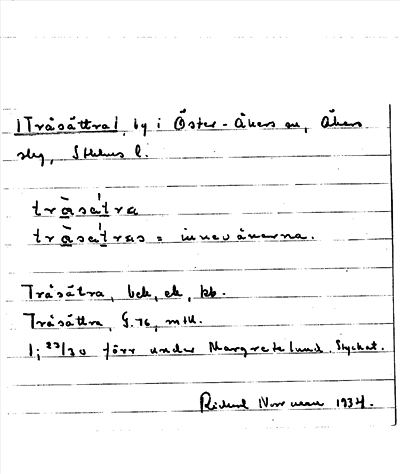 |Tråsättra|, by i Öster-Åkers sn, Åkers
slg, Sthlms l.
tràsátra
tràsátras = innevånarna.
Tråsätra, bek, ek, kb.
Tråsättra, G. 76, mtl.
1; 23/30 förr under Margretelund. Styckat.
Rickard Norrman 1934.